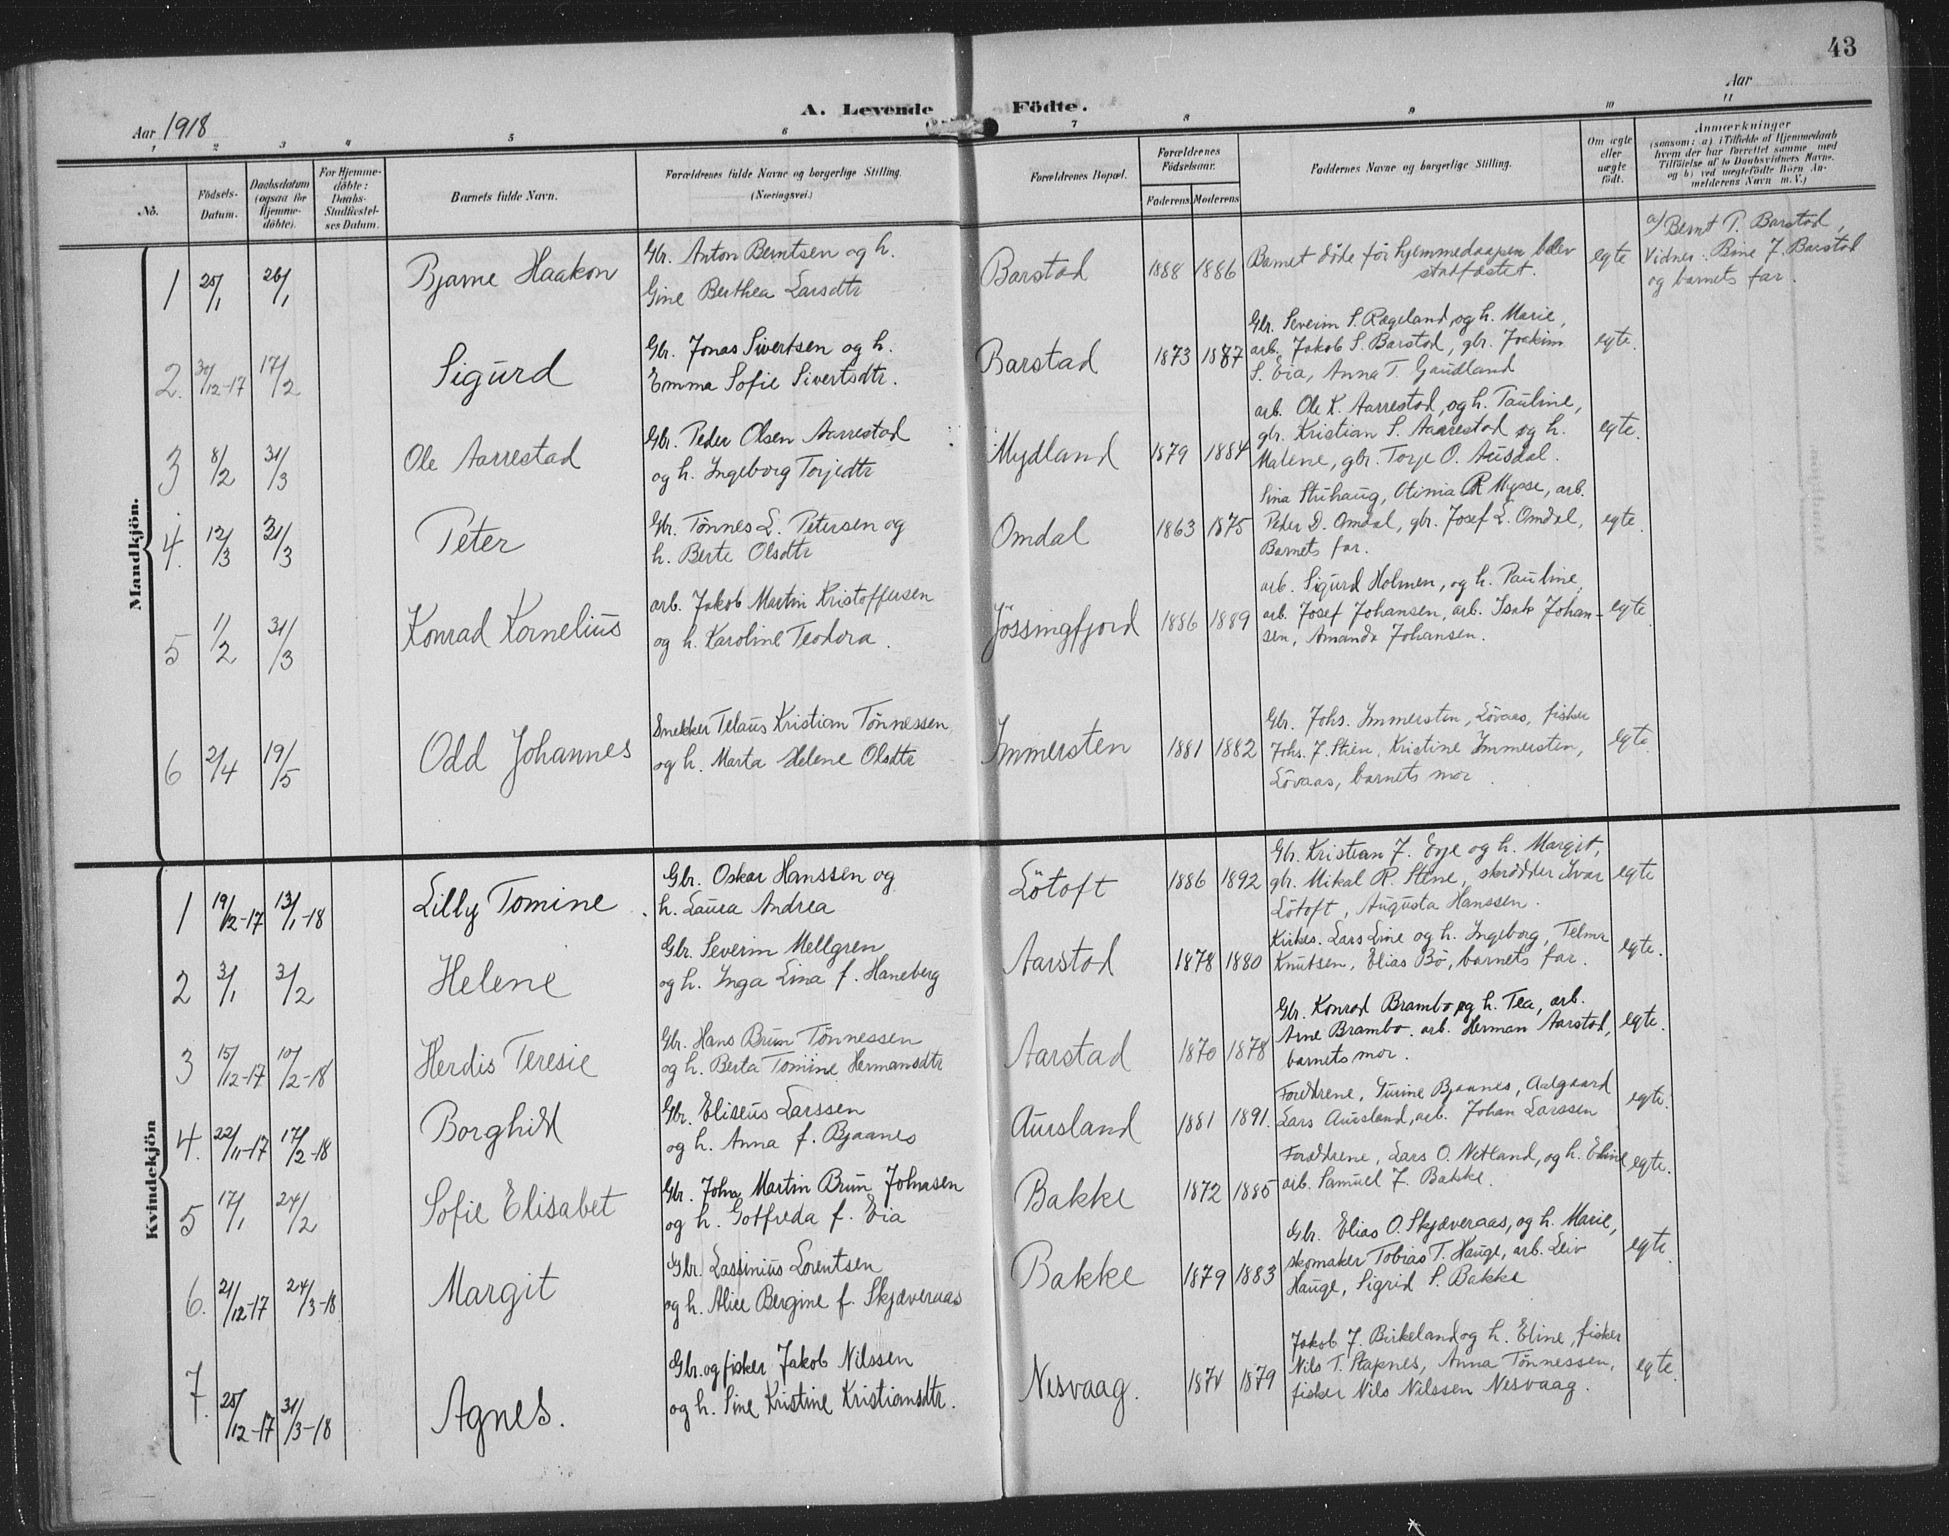 43
A. Levende Födte.
Aar 1918
Aar
1 2 3 4 5 6 7 8 9 10 11
No.
Födsels-Datum.
Daabsdatum (ogsaa for Hjemme-døbte).
For Hjemme-döbte: Daabs-Stadfæstel-ses Datum.
Barnets fulde Navn.
Forældrenes fulde Navne og borgerlige Stilling. (Næringsvei.)
Forældrenes Bopæl.
Forældrenes Fødselsaar.
Faderens Moderens
Faddernes Navne og borgerlige Stilling.
Om ægte eller uægte født.
Anmærkninger
(saasom: a) i Tilfælde af Hjemmedaab
hvem der har forrettet samme med
Tilføielse af to Daabsvidners Navne.
og b) ved uægtefødte Børn An-
melderens Navn m. V.)
Mandkjön.
1 25/1 26/1 Bjarne Haakon
Gbr. Anton Berntsen og h.
Gine Berthea Larsdtr
Barstad 1888 1886
Barnet döde för hjemmedaapen blev
stadfæstet.
egte
a/ Bernt T. Barstad,
Vidner: Bine J. Barstad
og barnets far.
2. 30/12-17 17/2 Sigurd
Gbr. Jonas Sivertsen og h.
Emma Sofie Sivertsdtr.
Barstad 1873 1887
Gbr. Severin S. Rægeland, og h. Marie,
arb. Jakob S. Barstad, gbr. Joakim
S. Eia, Anna T. Gaudland
egte.
3 8/2 31/3 Ole Aarrestad
Gbr. Peder Olsen Aarrestad
og h. Ingeborg Torjedtr
Mydland 1879 1884
arb. Ole K. Aarrestad, og h. Tauline,
gbr. Kristian S. Aarrestad og h.
Malene, gbr. Torje O. Ausdal.
egte.
4. 12/3 31/3 Peter
Gbr. Tönnes L. Petersen og
h. Berte Olsdtr
Omdal 1863 1875
Sina Struhaug, Otinia R Mysse, arb.
Peder D. Omdal, gbr. Josef L. Omdal,
Barnets far.
egte.
5 1/2 31/3 Konrad Kornelius
arb. Jakob Martin Kristoffersen
og h. Karoline Teodora.
Jössingfjord 1886 1889
arb. Sigurd Holmen, og h. Pauline,
arb. Josef Johansen, arb. Isak Johan-
sen, Amanda Johansen.
egte.
6 2/4 19/5 Odd Johannes
Snekker Telaus Kristian Tönnessen
og h. Marta Helene Olsdtr
Immersten 1881 1882
Gbr. Johs. Immersten, Lövaas, fisker
Johs. J. Stien, Kristine Immersten,
Lövaas, barnets mor.
egte.
Kvindekjön
1 19/12-17 13/1-18 Lilly Tomine.
Gbr. Oskar Hanssen og
h. Laura Andrea
Lötoft 1886 1892
Gbr. Kristian J. Evje og h. Margit,
gbr. Mikal R. Stene, skrædder Ivar
Lötoft, Augusta Hanssen.
egte
2 3/1 3/2 Helene
Gbr. Severin Mellgren
og h. Inga Lina f. Haneberg
Aarstad 1878 1880
Kirkes. Lars Line og h. Ingeborg, Telma
Knutsen, Elias Bö, barnets far.
egte.
3 15/12-17 10/2-18 Herdis Teresie
Gbr. Hans Brun Tönnessen
og h. Berta Tomine Hermansdtr
Aarstad 1870 1878
Gbr. Konrad Brambo og h. Tea, arb.
Arne Brambo. arb. Herman Aarstad,
barnets mor.
egte.
4. 22/11-17 17/2-18 Borghild
Gbr. Eliseus Larssen
og h. Anna f. Bjaanes
Aursland 1881 1891.
Foreldrene, Turine Bjaanes, Aalgaard
Lars Aursland, arb. Johan Larssen
egte.
5 17/1 24/2 Sofie Elisabet
Gbr. John Martin Brun Johnasen
og h. Gotfreda f. Eia
Bakke 1872 1885
Foreldrene, Lars O. Netland, og h. Eline
arb. Samuel J. Bakke.
egte.
6. 21/12-17 24/3-18 Margit
Gbr. Lassinius Lorentsen
og h. Alice Bergine f. Skjæveraas
Bakke 1879 1883
Gbr. Elias O. Skjæveraas, og h. Marie,
skomaker Tobias T. Hauge, arb. Leiv
Hauge, Sigrid S. Bakke
egte.
7. 25/12-17 31/3-18 Agnes.
Gbr. og fisker Jakob Nilssen
og h. Sine Kristine Kristiansdtr.
Nesvaag. 1874 1879
Jakob J. Birkeland og h. Eline, fisker
Nils T. Stapnes, Anna Tönnessen,
fisker Nils Nilssen Nesvaag.
egte.